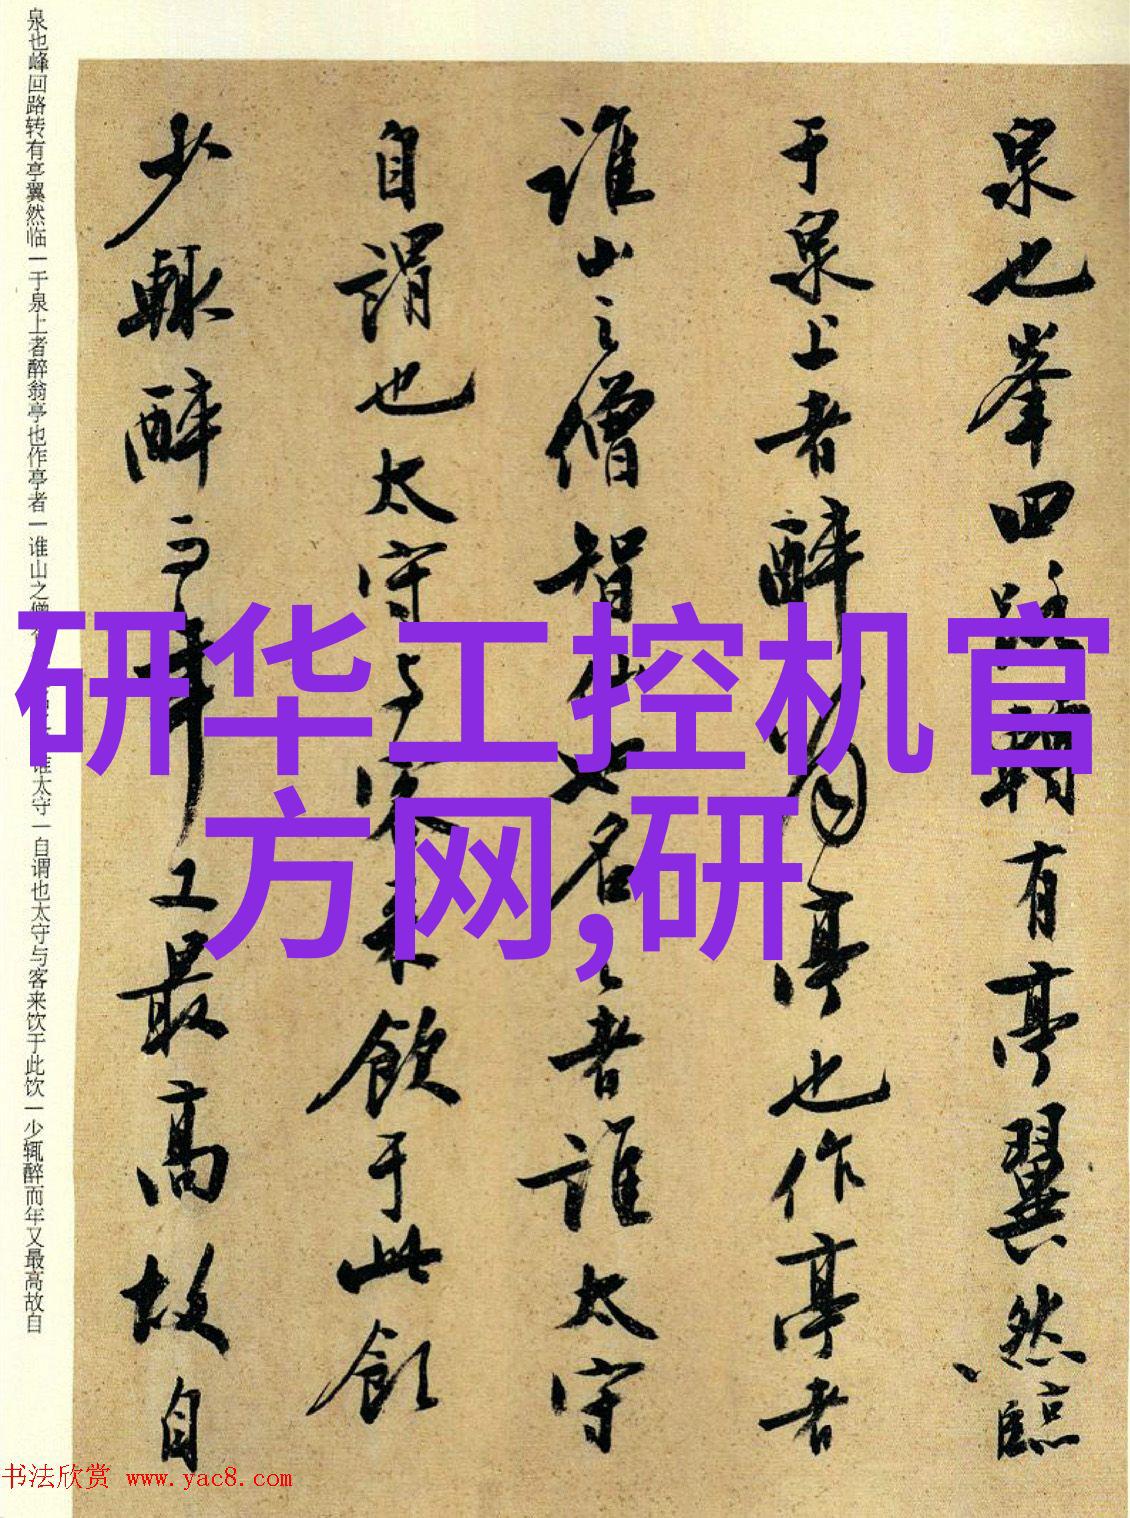 泉也峰回路转有亭翼然临一于泉上者醉翁亭也作亭者一谁山之僧
谁太守一自谓也太守与客来饮于此饮一少辄醉而年又最高故自
泉也峯回路转有亭翼然臨
于泉上者醉翁亭也作亭者
誰山之僧智仙也名之者誰太守
自謂也太守与客来飲于此飲
少輒醉而年又最高故自
研华工控机官
方网,研
书法欣赏 www.yac8.com